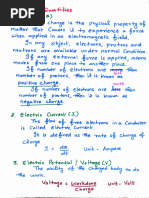 Quantities
charge is the physical property of
matter that causes it to experience a force
when applied in an electromagnetic field.
In any object, electrons, protons and
neutrons are available under normal Condition
If any external force, If number of
electrons are less than number
of protons, then it is known as
positive charge.
If number of electrons are more than
number of protons, then it is known as
negative charge.
2. Electric Current (I)
The flow of free electrons in a Conductor
is Called electric Current.
It is defined as the rate of Change of
Charge
I = dq
dt
Unit - Ampere
3. Electric Potential / Voltage (V)
The ability of the Charged body to do
the work.
Voltage = Workdone
Charge
Unit - Volt